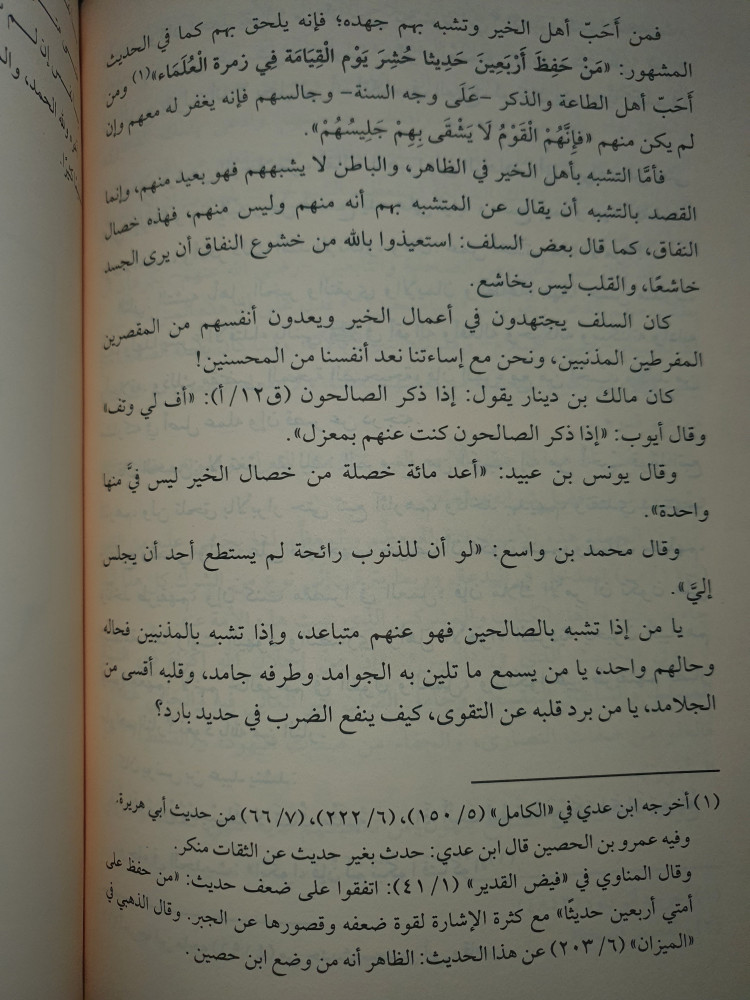 فمن أَحَبّ أهل الخير وتشبه بهم جهده؛ فإنه يلحق بهم كما في الحديث
المشهور: «مَنْ حَفِظَ أَرْبَعِينَ حَدِيثا حُشِرَ يَوْم الْقِيَامَة فِي زمرة الْعُلَمَاء»(١) ومن
أَحَبّ أهل الطاعة والذكر -عَلَى وجه السنة- وجالسهم فإنه يغفر له معهم وإن
لم يكن منهم «فإِنَّهُمْ الْقَوْمُ لَا يَشْقَى بِهِمْ جَلِيسُهُمْ».
فأمَّا التشبه بأهل الخير في الظاهر، والباطن لا يشبههم فهو بعيد منهم، وإنما
القصد بالتشبه أن يقال عن المتشبه بهم أنه منهم وليس منهم، فهذه خصال
النفاق، كما قال بعض السلف: استعيذوا بالله من خشوع النفاق أن يرى الجسد
خاشعًا، والقلب ليس بخاشع.
كان السلف يجتهدون في أعمال الخير ويعدون أنفسهم من المقصرين
المفرطين المذنبين، ونحن مع إساءتنا نعد أنفسنا من المحسنين!
كان مالك بن دينار يقول: إذا ذكر الصالحون (ق١٢/ أ): «أف لي وتف»
وقال أيوب: «إذا ذكر الصالحون كنت عنهم بمعزل».
وقال يونس بن عبيد: «أعد مائة خصلة من خصال الخير ليس فيَّ منها
واحدة».
وقال محمد بن واسع: «لو أن للذنوب رائحة لم يستطع أحد أن يجلس
إليَّ».
يا من إذا تشبه بالصالحين فهو عنهم متباعد، وإذا تشبه بالمذنبين فحاله
وحالهم واحد، يا من يسمع ما تلين به الجوامد وطرفه جامد، وقلبه أقسى من
الجلامد، يا من برد قلبه عن التقوى، كيف ينفع الضرب في حديد بارد؟
(١) أخرجه ابن عدي في «الكامل» (٥/ ١٥٠)، (٦/ ٢٢٢)، (٧/ ٦٦) من حديث أبي هريرة.
وفيه عمرو بن الحصين قال ابن عدي: حدث بغير حديث عن الثقات منكر.
وقال المناوي في «فيض القدير» (١/ ٤١): اتفقوا على ضعف حديث: «من حفظ على
أمتي أربعين حديثًا» مع كثرة الإشارة لقوة ضعفه وقصورها عن الجبر. وقال الذهبي في
«الميزان» (٦/ ٢٠٣) عن هذا الحديث: الظاهر أنه من وضع ابن حصين .